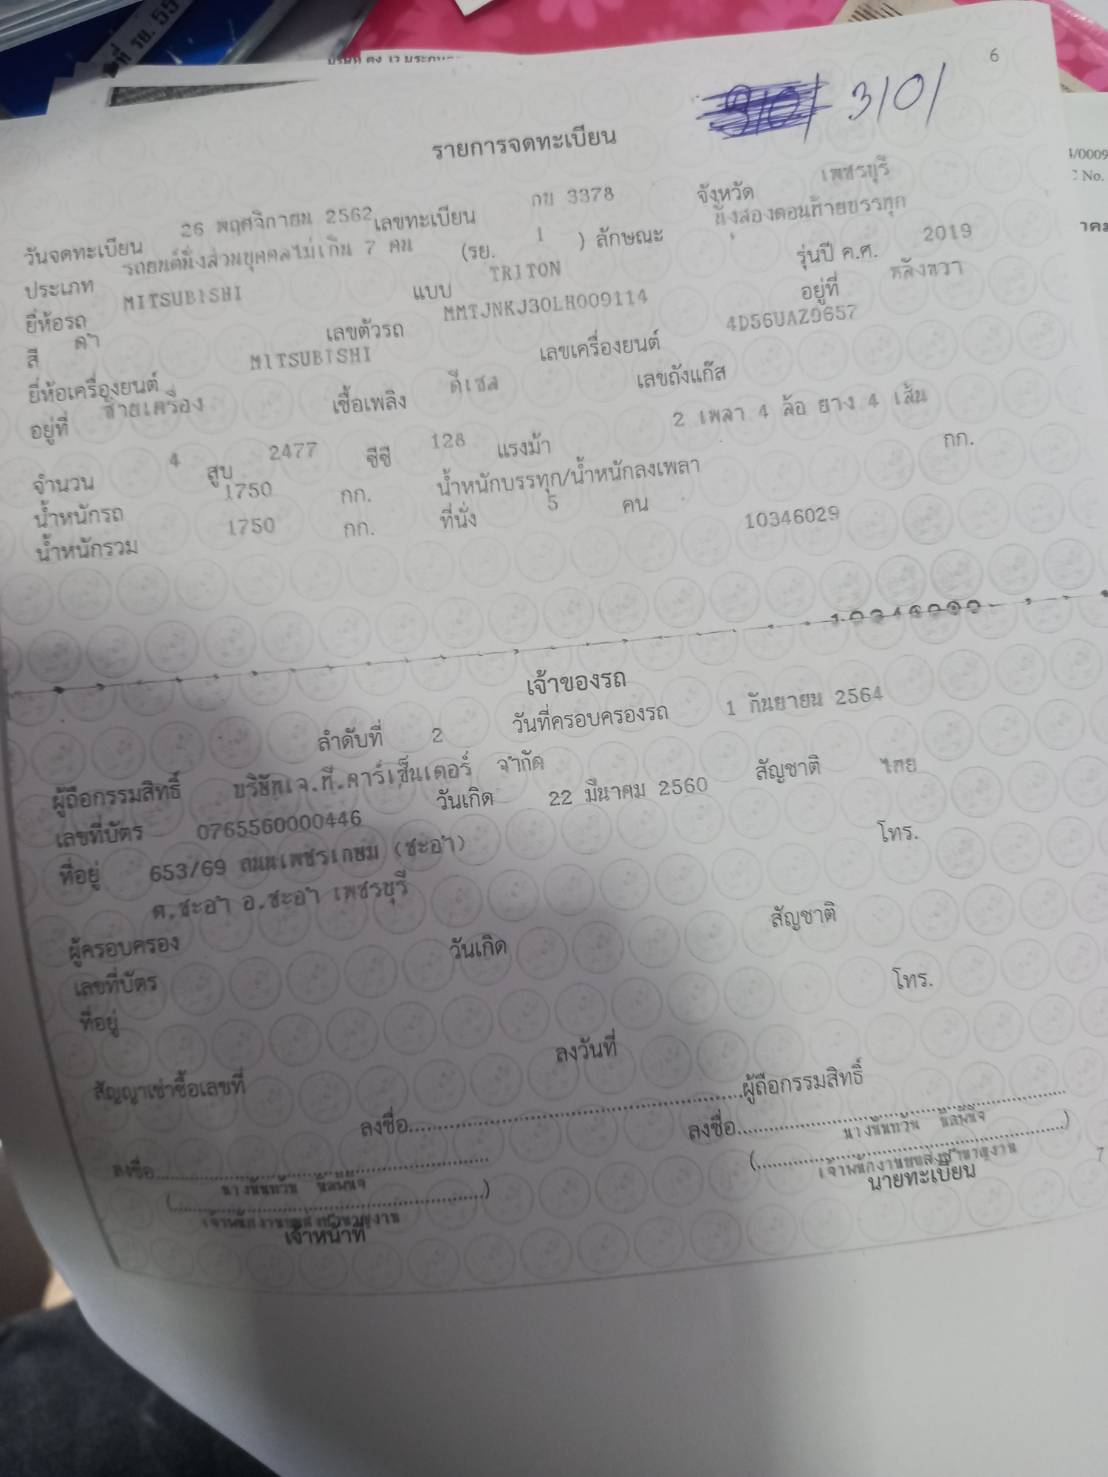 ที่ รย. 55
6
3101 3101
รายการจดทะเบียน
4/0009
No.
วันจดทะเบียน 26 พฤศจิกายน 2562 เลขทะเบียน กข 3378 จังหวัด เพชรบุรี
ประเภท รถยนต์นั่งส่วนบุคคลไม่เกิน 7 คน (รย. 1 ) ลักษณะ นั่งสองตอนท้ายบรรทุก
ยี่ห้อรถ MITSUBISHI แบบ TRITON รุ่นปี ค.ศ. 2019
สี ดำ เลขตัวรถ MMTJNKJ30LH009114 อยู่ที่ หลังขวา
ยี่ห้อเครื่องยนต์ MITSUBISHI เลขเครื่องยนต์ 4D56UAZ9657
อยู่ที่ ซ้ายเครื่อง เชื้อเพลิง ดีเซล เลขถังแก๊ส
จำนวน 4 สูบ 2477 ซีซี 128 แรงม้า 2 เพลา 4 ล้อ ยาง 4 เส้น
น้ำหนักรถ 1750 กก. น้ำหนักบรรทุก/น้ำหนักลงเพลา กก.
น้ำหนักรวม 1750 กก. ที่นั่ง 5 คน
10346029
เจ้าของรถ
ลำดับที่ 2 วันที่ครอบครองรถ 1 กันยายน 2564
ผู้ถือกรรมสิทธิ์ บริษัทเจ.ที.คาร์เซ็นเตอร์ จำกัด
เลขที่บัตร 0765560000446 วันเกิด 22 มีนาคม 2560 สัญชาติ ไทย
ที่อยู่ 653/69 ถนนเพชรเกษม (ชะอำ) โทร.
ต.ชะอำ อ.ชะอำ เพชรบุรี
ผู้ครอบครอง วันเกิด สัญชาติ
เลขที่บัตร
ที่อยู่ โทร.
สัญญาเช่าซื้อเลขที่ ลงวันที่
ลงชื่อ ผู้ถือกรรมสิทธิ์
ลงชื่อ ลงชื่อ
เจ้าหน้าที่ นายทะเบียน
7